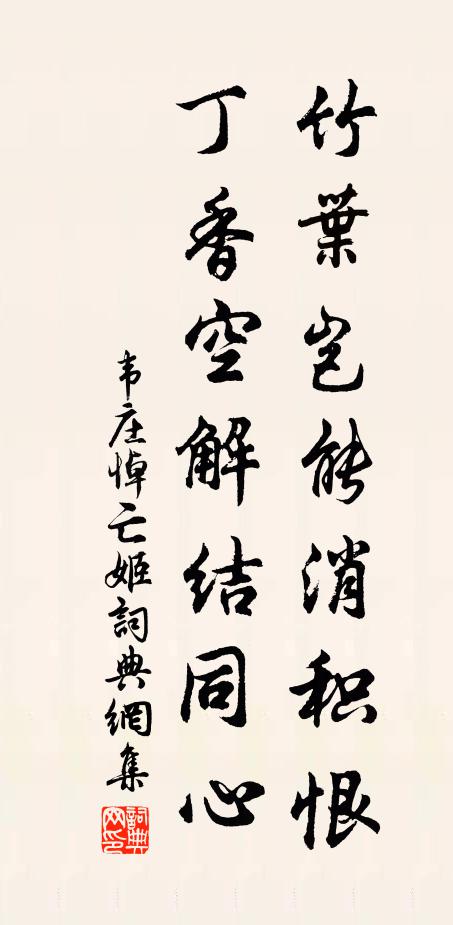 竹葉岂能消积恨
丁香空解结同心
韦庄悼亡姬詞典網集
詞典網印